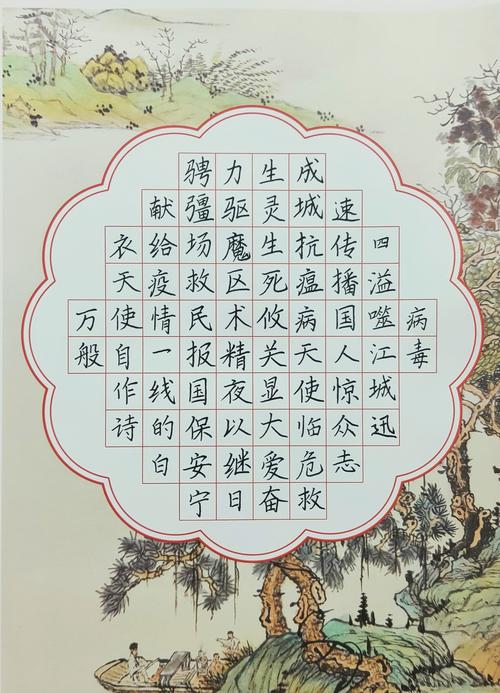 病毒
四溢噬江城迅
速传播国人惊众志
成城抗瘟病天使临危救
生灵生死攸关显大爱奋
力驱魔区术精夜以继日
骋疆场救民报国保安宁
献给疫情一线的白
衣天使自作诗
万般